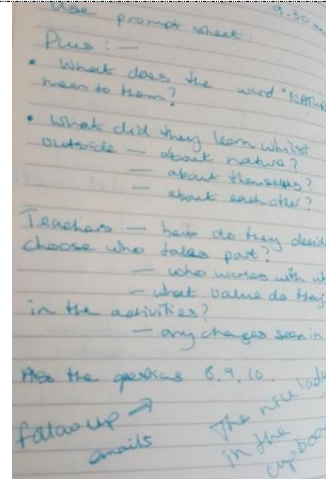 Use prompt sheet. 9.30
Plus : —
• What does the word "NATU
mean to them?
• What did they learn whilst
outside — about nature?
— about themselves?
— about each other?
Teachers — how do they decid
choose who takes part?
— who works with wh
— what value do they
in the activities?
— any changes seen in
Also the questions 8.9.10.
follow up →
emails
The nice lady
in the
cupboa